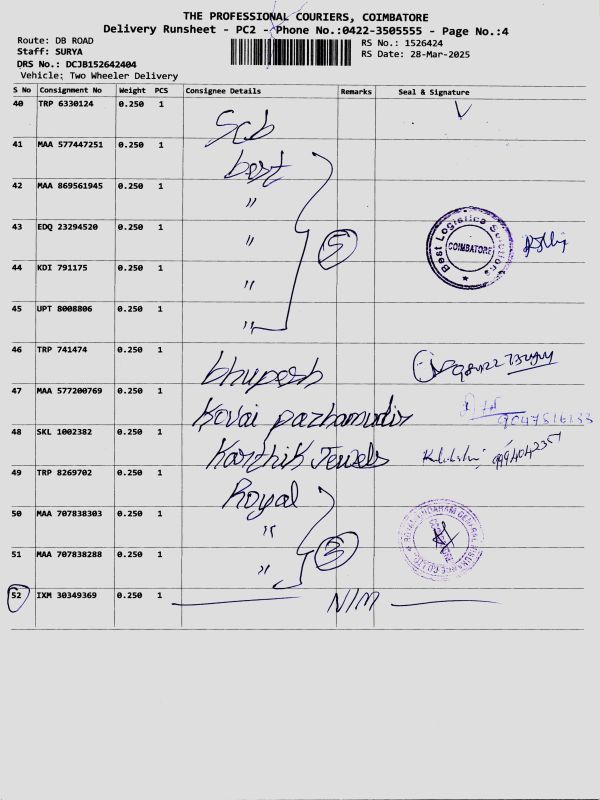 THE PROFESSIONAL COURIERS, COIMBATORE
Delivery Runsheet - PC2 - Phone No.:0422-3505555 - Page No.:4
Route: DB ROAD
Staff: SURYA
DRS No.: DCJB152642404
Vehicle: Two Wheeler Delivery
RS No.: 1526424
RS Date: 28-Mar-2025
S No Consignment No Weight PCS Consignee Details Remarks Seal & Signature
40 TRP 6330124 0.250 1 Scb
41 MAA 577447251 0.250 1 best
42 MAA 869561945 0.250 1 "
43 EDQ 23294520 0.250 1 " 5
Best Logistics Solutions COIMBATORE
44 KDI 791175 0.250 1 "
45 UPT 8008806 0.250 1 "
46 TRP 741474 0.250 1 bhupesh
47 MAA 577200769 0.250 1 Kovai pazhamudir 9047516133
48 SKL 1002382 0.250 1 Karthik Jewels
49 TRP 8269702 0.250 1 Royal
50 MAA 707838303 0.250 1 " 3
51 MAA 707838288 0.250 1 "
52 IXM 30349369 0.250 1 NIM